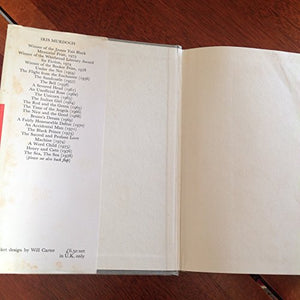 IRIS MURDOCH
Winner of the James Tait Black
Memorial Prize, 1973
Winner of the Whitbread Literary Award
for Fiction, 1974
Winner of the Booker Prize, 1978
Under the Net (1954)
The Flight from the Enchanter (1956)
The Sandcastle (1957)
The Bell (1958)
A Severed Head (1961)
An Unofficial Rose (1962)
The Unicorn (1963)
The Italian Girl (1964)
The Red and the Green (1965)
The Time of the Angels (1966)
The Nice and the Good (1968)
Bruno's Dream (1969)
A Fairly Honourable Defeat (1970)
An Accidental Man (1971)
The Black Prince (1973)
The Sacred and Profane Love
Machine (1974)
A Word Child (1975)
Henry and Cato (1976)
The Sea, The Sea (1978)
(please see also back flap)
design by Will Carter
£6.50 net
in U.K. only